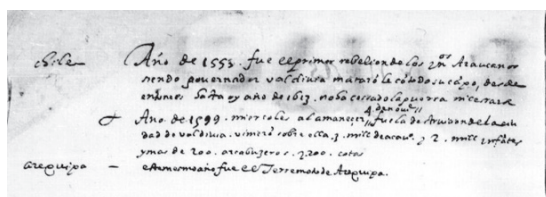 chile — Año de 1553. fue el primer rebelion de los yn.os Araucanos
siendo governador valdivia mataró le cō todo su cāpo, desde
entonces hasta oy año de 1613. no ha cessado la guerra ni cessará
Año de 1599. miercoles al amanecer fue la destruicion de la ciu
dad de valdivia. vinieró sobre ella. 3. mill de a cauº. y 2. mill infātes
y mas de 200. arcabuzeros. y 200. cotas
arequipa — este mesmo año fue el Terremoto de Arequipa.